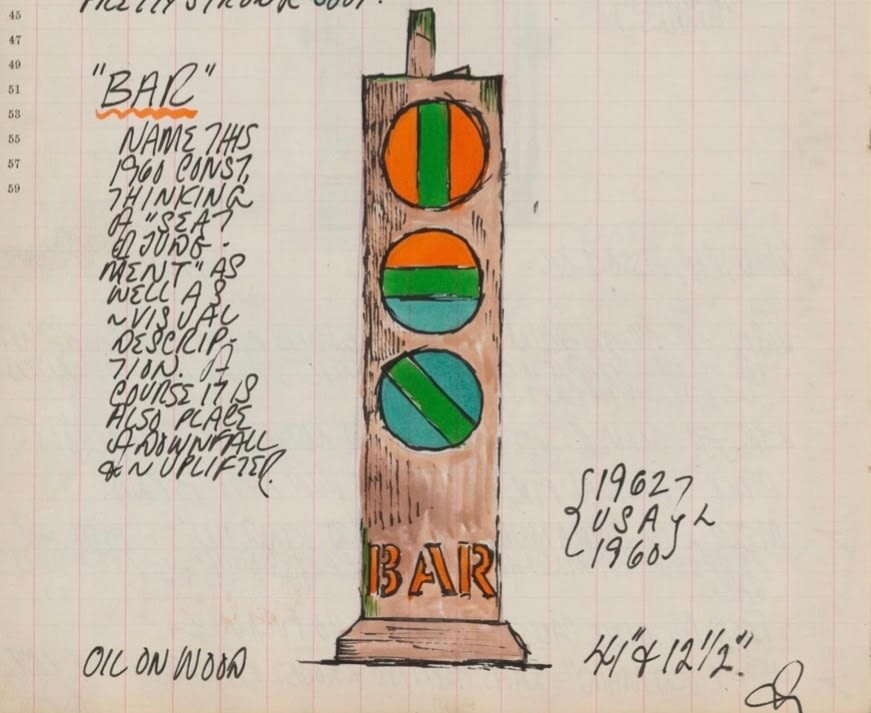 PRETTY STRONG BODY.
45
47
49
51
53
55
57
59
"BAR"
NAME THIS
1960 CONST,
THINKING
OF "SEAT
OF JUDG-
MENT" AS
WELL AS
~ VISUAL
DESCRIP-
TION. OF
COURSE IT IS
ALSO PLACE
OF DOWNFALL
& ~ UPLIFTER.
BAR
1962
USA
1960
OIL ON WOOD
41" & 12 1/2".